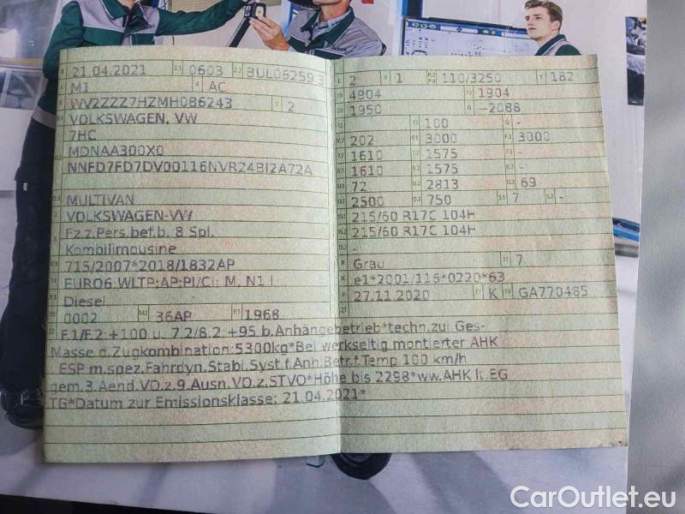 21.04.2021 0603 BUL06259 3
M1 AC
WV2ZZZ7HZMH086243 2
VOLKSWAGEN, VW
7HC
MDNAA300X0
NNFD7FD7DV00116NVR24BI2A72A
MULTIVAN
VOLKSWAGEN-VW
Fz.z.Pers.bef.b. 8 Spl.
Kombilimousine
715/2007*2018/1832AP
EURO6 WLTP;AP;PI/CI; M, N1 I
Diesel
0002 36AP 1968
F.1/F.2 +100 u. 7.2/8.2 +95 b.Anhängebetrieb*techn.zul Ges-
Masse d.Zugkombination 5300kg*Bei werkseitig montierter AHK
ESP m.spez.Fahrdyn.Stabi.Syst.f.Anh.Betr.f.Temp 100 km/h
gem.3.Aend.VO.z.9.Ausn.VO.z.STVO*Höhe bis 2298*ww.AHK lt.EG
TG*Datum zur Emissionsklasse: 21.04.2021*
2 1 110/3250 182
4904 1904
1950 -2088
100 -
202 3000 3000
1610 1575 -
1610 1575 -
72 2813 69
2500 750 7 -
215/60 R17C 104H
215/60 R17C 104H
-
Grau 7
e1*2001/116*0220*63
27.11.2020 K GA770485
CarOutlet.eu